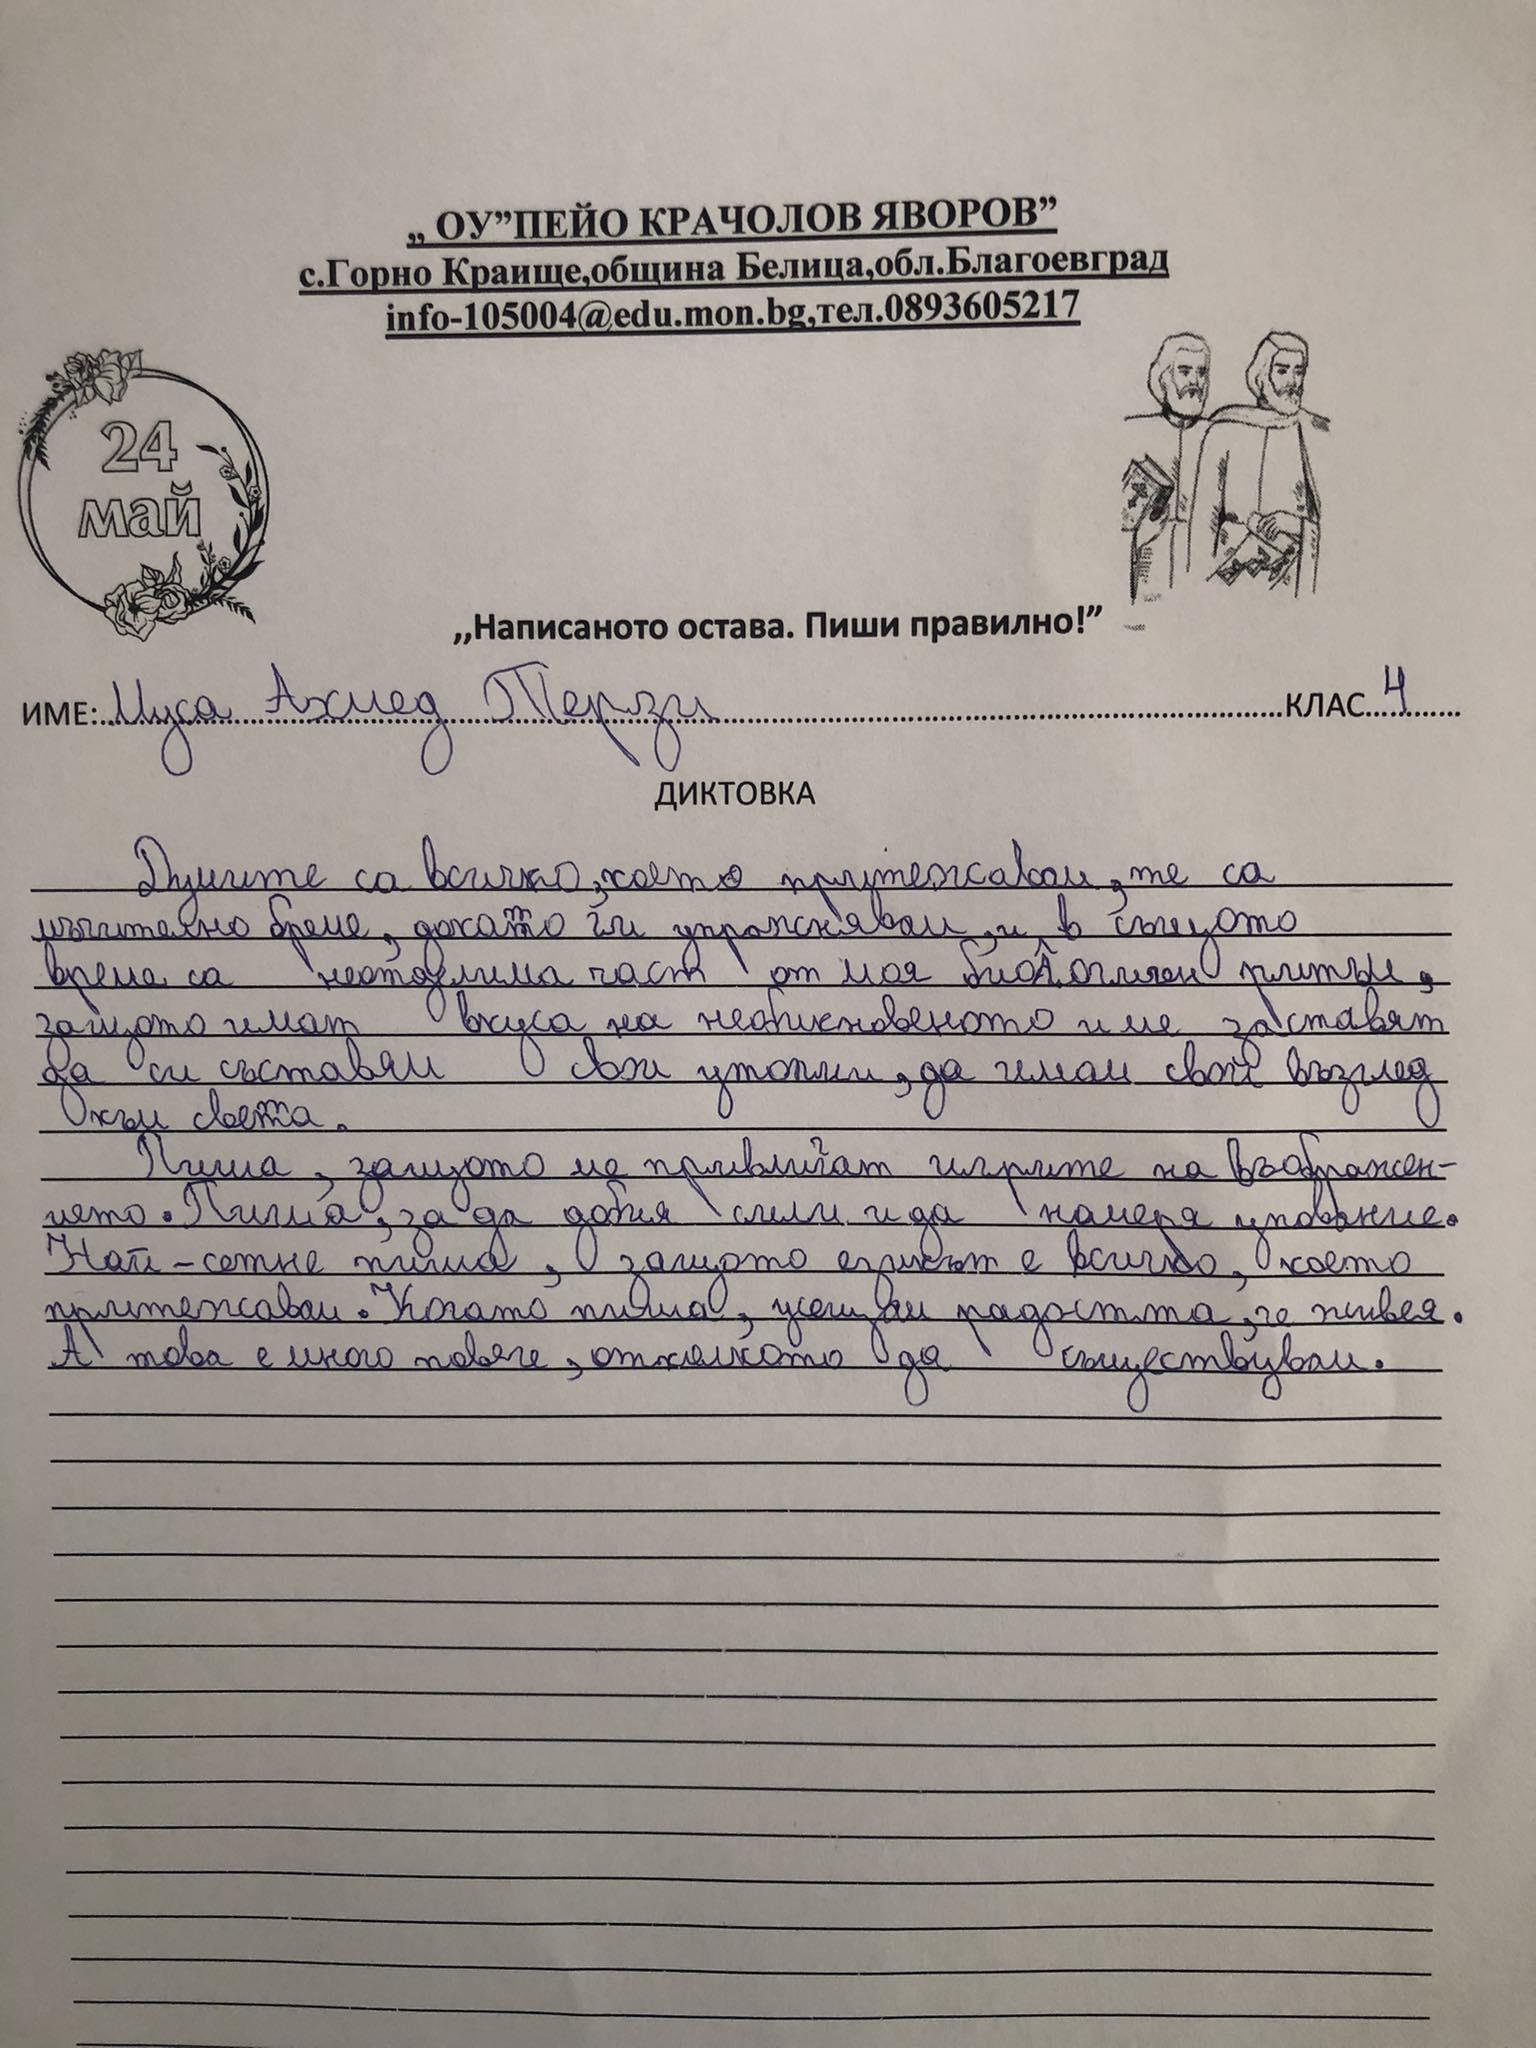 „ ОУ”ПЕЙО КРАЧОЛОВ ЯВОРОВ”
с.Горно Краище,община Белица,обл.Благоевград
info-105004@edu.mon.bg,тел.0893605217
24
май
,,Написаното остава. Пиши правилно!”
ИМЕ: Муса Ахмед Терзи КЛАС 4
ДИКТОВКА
Думите са всичко, което притежавам, те са
мъчително бреме, докато ги упражнявам, и в същото
време са неотделима част от моя биологичен ритъм,
защото имат вкуса на необикновеното и ме заставят
да си съставям свои утопии, да имам свой възглед
към света.
Пиша, защото ме привличат игрите на въображен-
ието. Пиша, за да добия сили и да намеря упование.
Най-сетне пиша, защото езикът е всичко, което
притежавам. Когато пиша, усещам радостта, че живея.
А това е много повече, отколкото да съществувам.